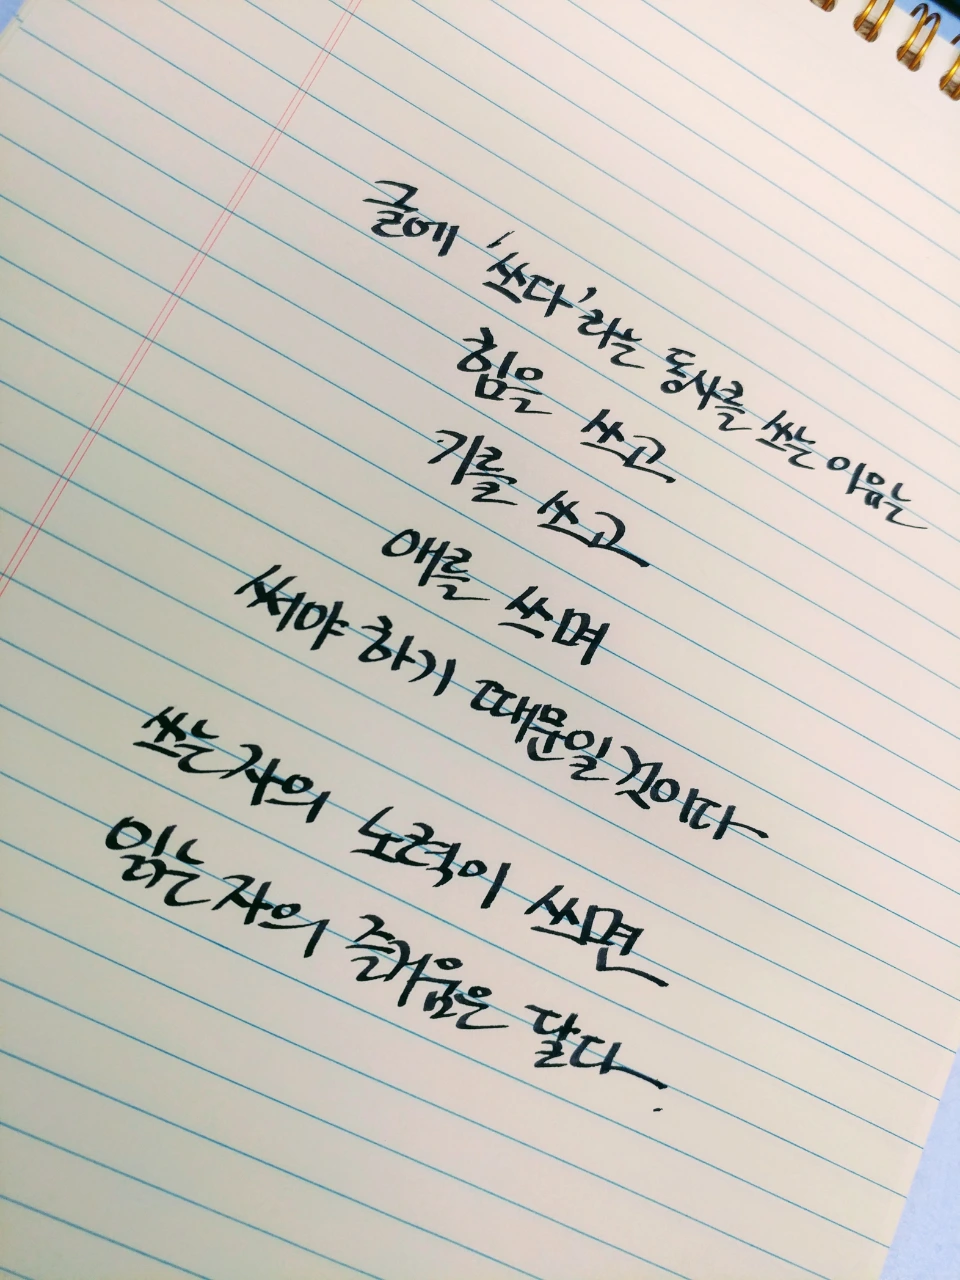 글에 '쓰다'라는 동사를 쓰는 이유는
힘을 쓰고
기를 쓰고
애를 쓰며
써야 하기 때문일 것이다
쓰는 자의 노력이 쓰면
읽는 자의 즐거움은 달다.